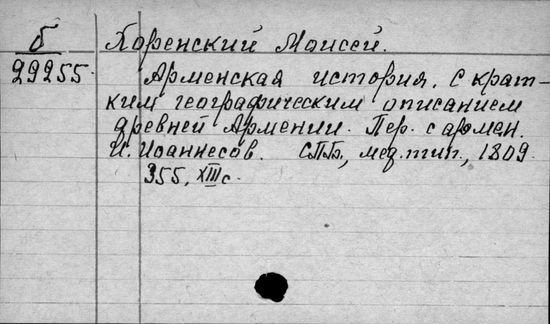 б
29255
Хоренский Моисей.
Арменская история. С крат-
ким географическим описанием
древней Армении. Пер. с армен.
И. Иоаннесов. СПБ., мед. тип., 1809.
355, XIII с.